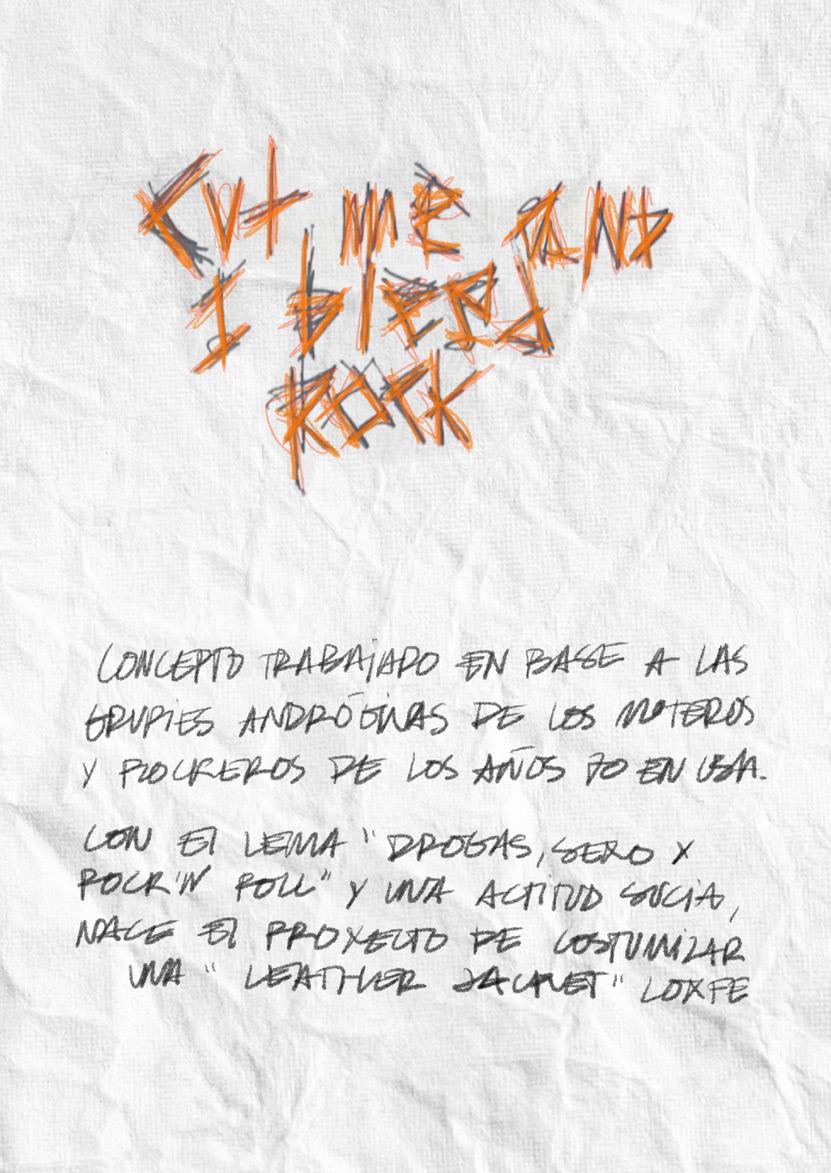 Cut me and
I bleed
Rock
CONCEPTO TRABAJADO EN BASE A LAS
GRUPIES ANDRÓGINAS DE LOS MOTEROS
Y ROCKEROS DE LOS AÑOS 70 EN USA.
CON El LEMA "DROGAS, SEXO Y
ROCK'N ROLL" Y UNA ACTITUD SUCIA,
NACE El PROYECTO DE COSTUMIZAR
UNA "LEATHER JACKET" LOXFE